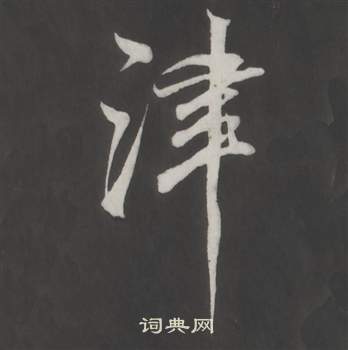 津
词典网